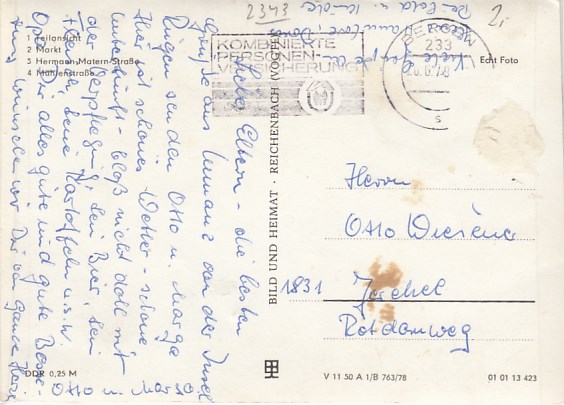 2343
2,-
1 Teilansicht
2 Markt
3 Hermann-Matern-Straße
4 Mühlenstraße
KOMBINIERTE
PERSONEN-
VERSICHERUNG
BERGEN
233
78
Echt Foto
Liebe Eltern - die besten
Grüße aus von der Insel
Rügen senden Otto u. Marga
Hier ist schönes Wetter - schöne
Unterkunft - bloß nicht doll mit
der Verpflegung, kein Bier, kein
keine Kartoffeln u.s.w.
Opa Dir alles gute und gute Besse-
rung wünschen wir Dir von ganzen Herzen
Otto u. Marga
BILD UND HEIMAT · REICHENBACH (VOGTL
Herrn
Otto
1831
Rotdornweg
DDR 0,25 M
V 11 50 A 1/B 763/78
01 01 13 423